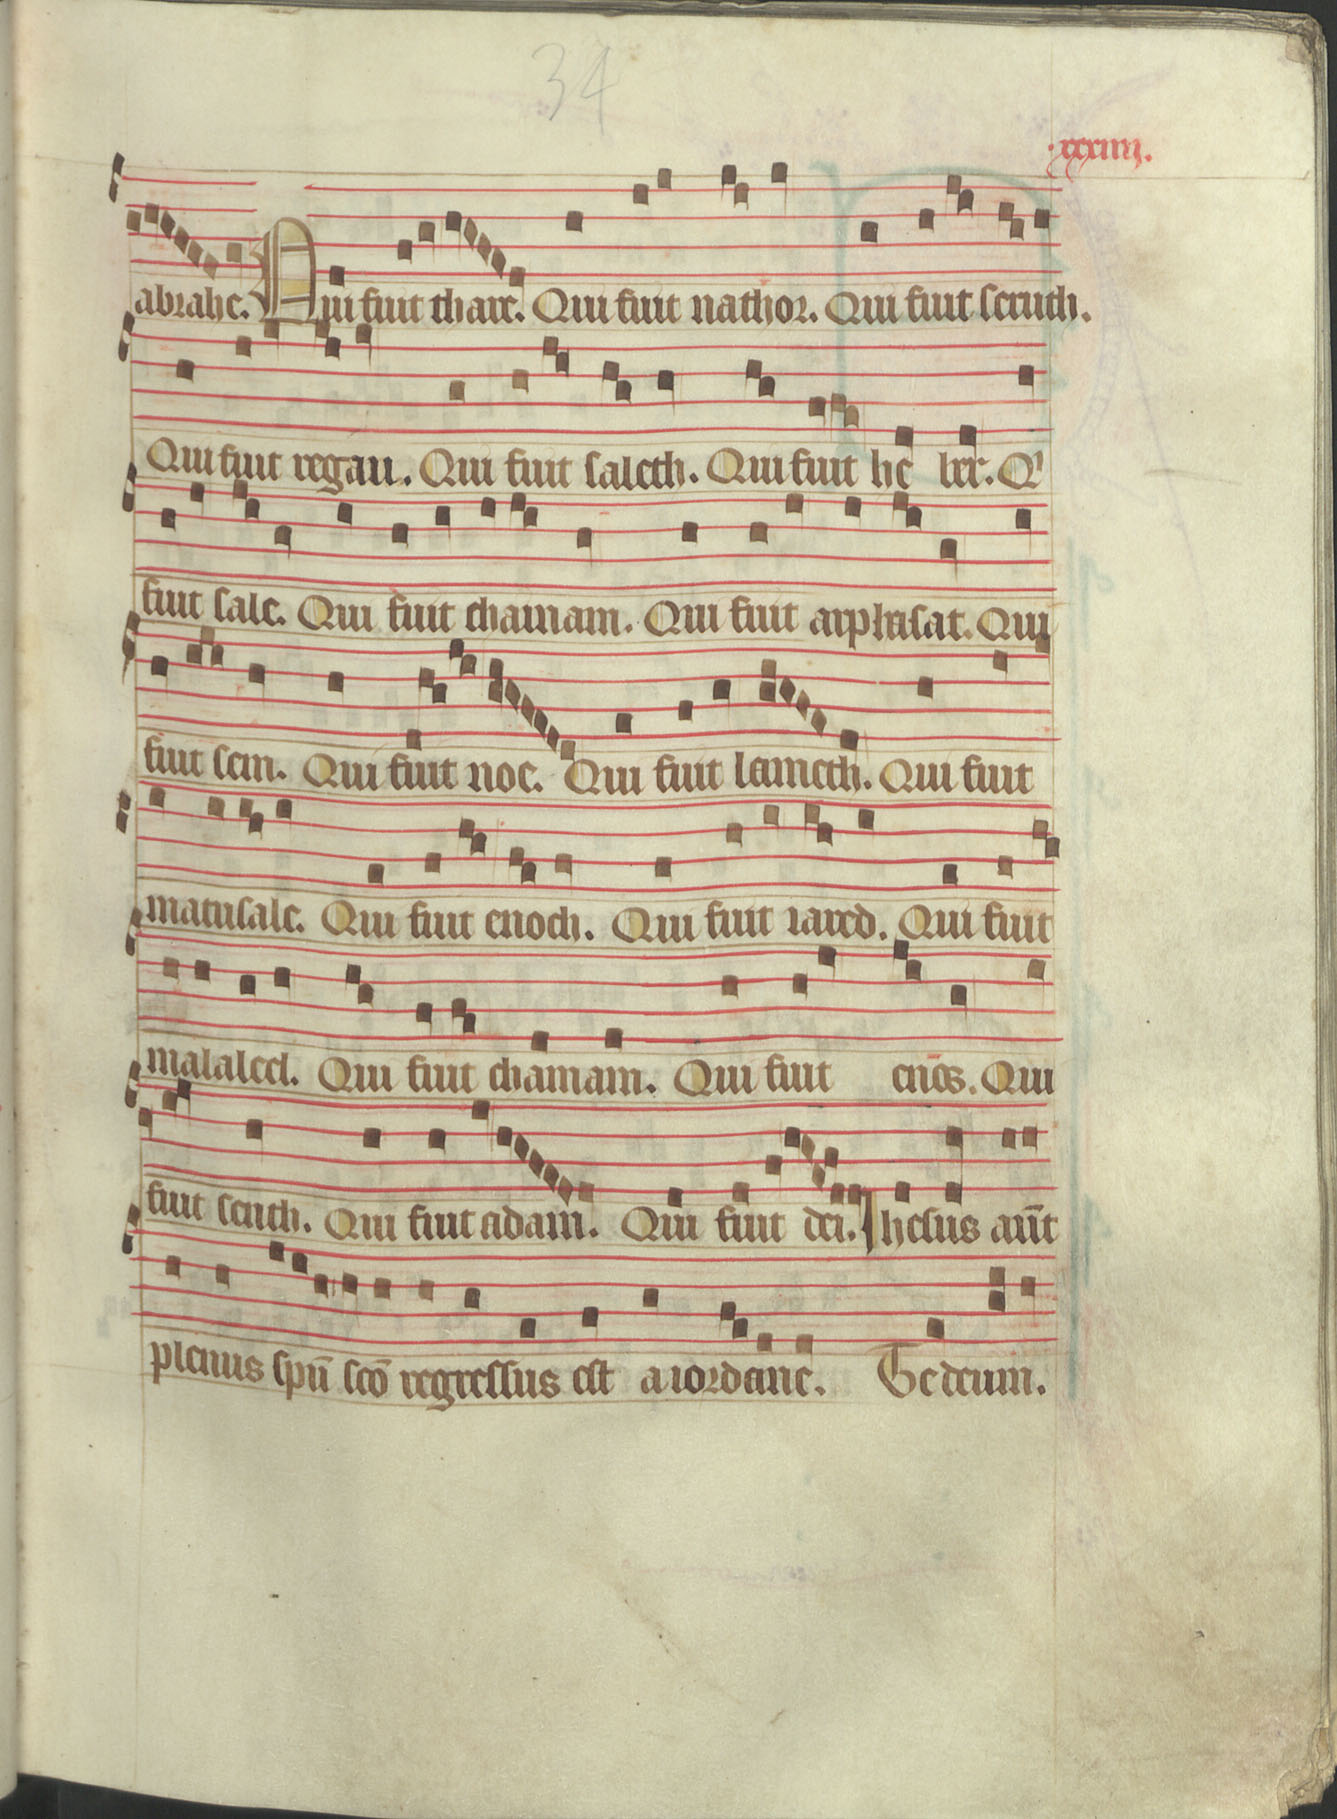 34
.xxxiiii.
abrahe. Qui fuit thare. Qui fuit nathor. Qui fuit seruth.
Qui fuit regau. Qui fuit faleth. Qui fuit he ber. Qͥ
fuit sale. Qui fuit chainam. Qui fuit arphasat. Qui
fuit sem. Qui fuit noe. Qui fuit lameth. Qui fuit
matusale. Qui fuit enoch. Qui fuit iared. Qui fuit
malaleel. Qui fuit chainam. Qui fuit enos. Qui
fuit seuth. Qui fuit adam. Qui fuit dei. Ihesus aūt
plenus spū scō regressus est a iordane. Te deum.